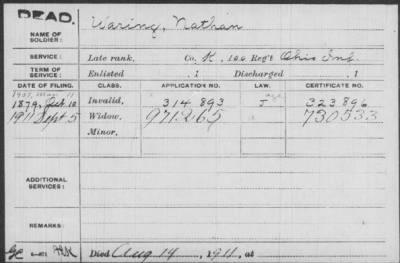 DEAD.
NAME OF SOLDIER: Waring, Nathan
SERVICE: Late rank, Co. K, 100 Reg't Ohio Inf.
TERM OF SERVICE: Enlisted , 1 Discharged , 1
DATE OF FILING. CLASS. APPLICATION NO. LAW. CERTIFICATE NO.
1907, Mar. 11
1879, Invalid, 314 893 J 323 896
1911 Sept 5 Widow, 971265 730533
Minor,
ADDITIONAL SERVICES:
REMARKS:
6-871 Died Aug 14, 1911, at